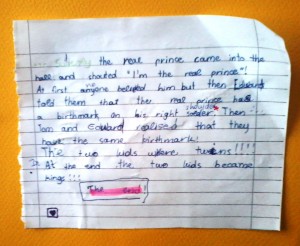 the real prince came into the
hall and shouted "I'm the real prince"!
At first no one beleved him but then Edward
told them that the real prince has
a birthmark on his right shoulder. Then
Tom and Edward realised that they
have the same birthmark!
The two kids where twins!!!!
At the end the two kids became
kings!!!
The end!